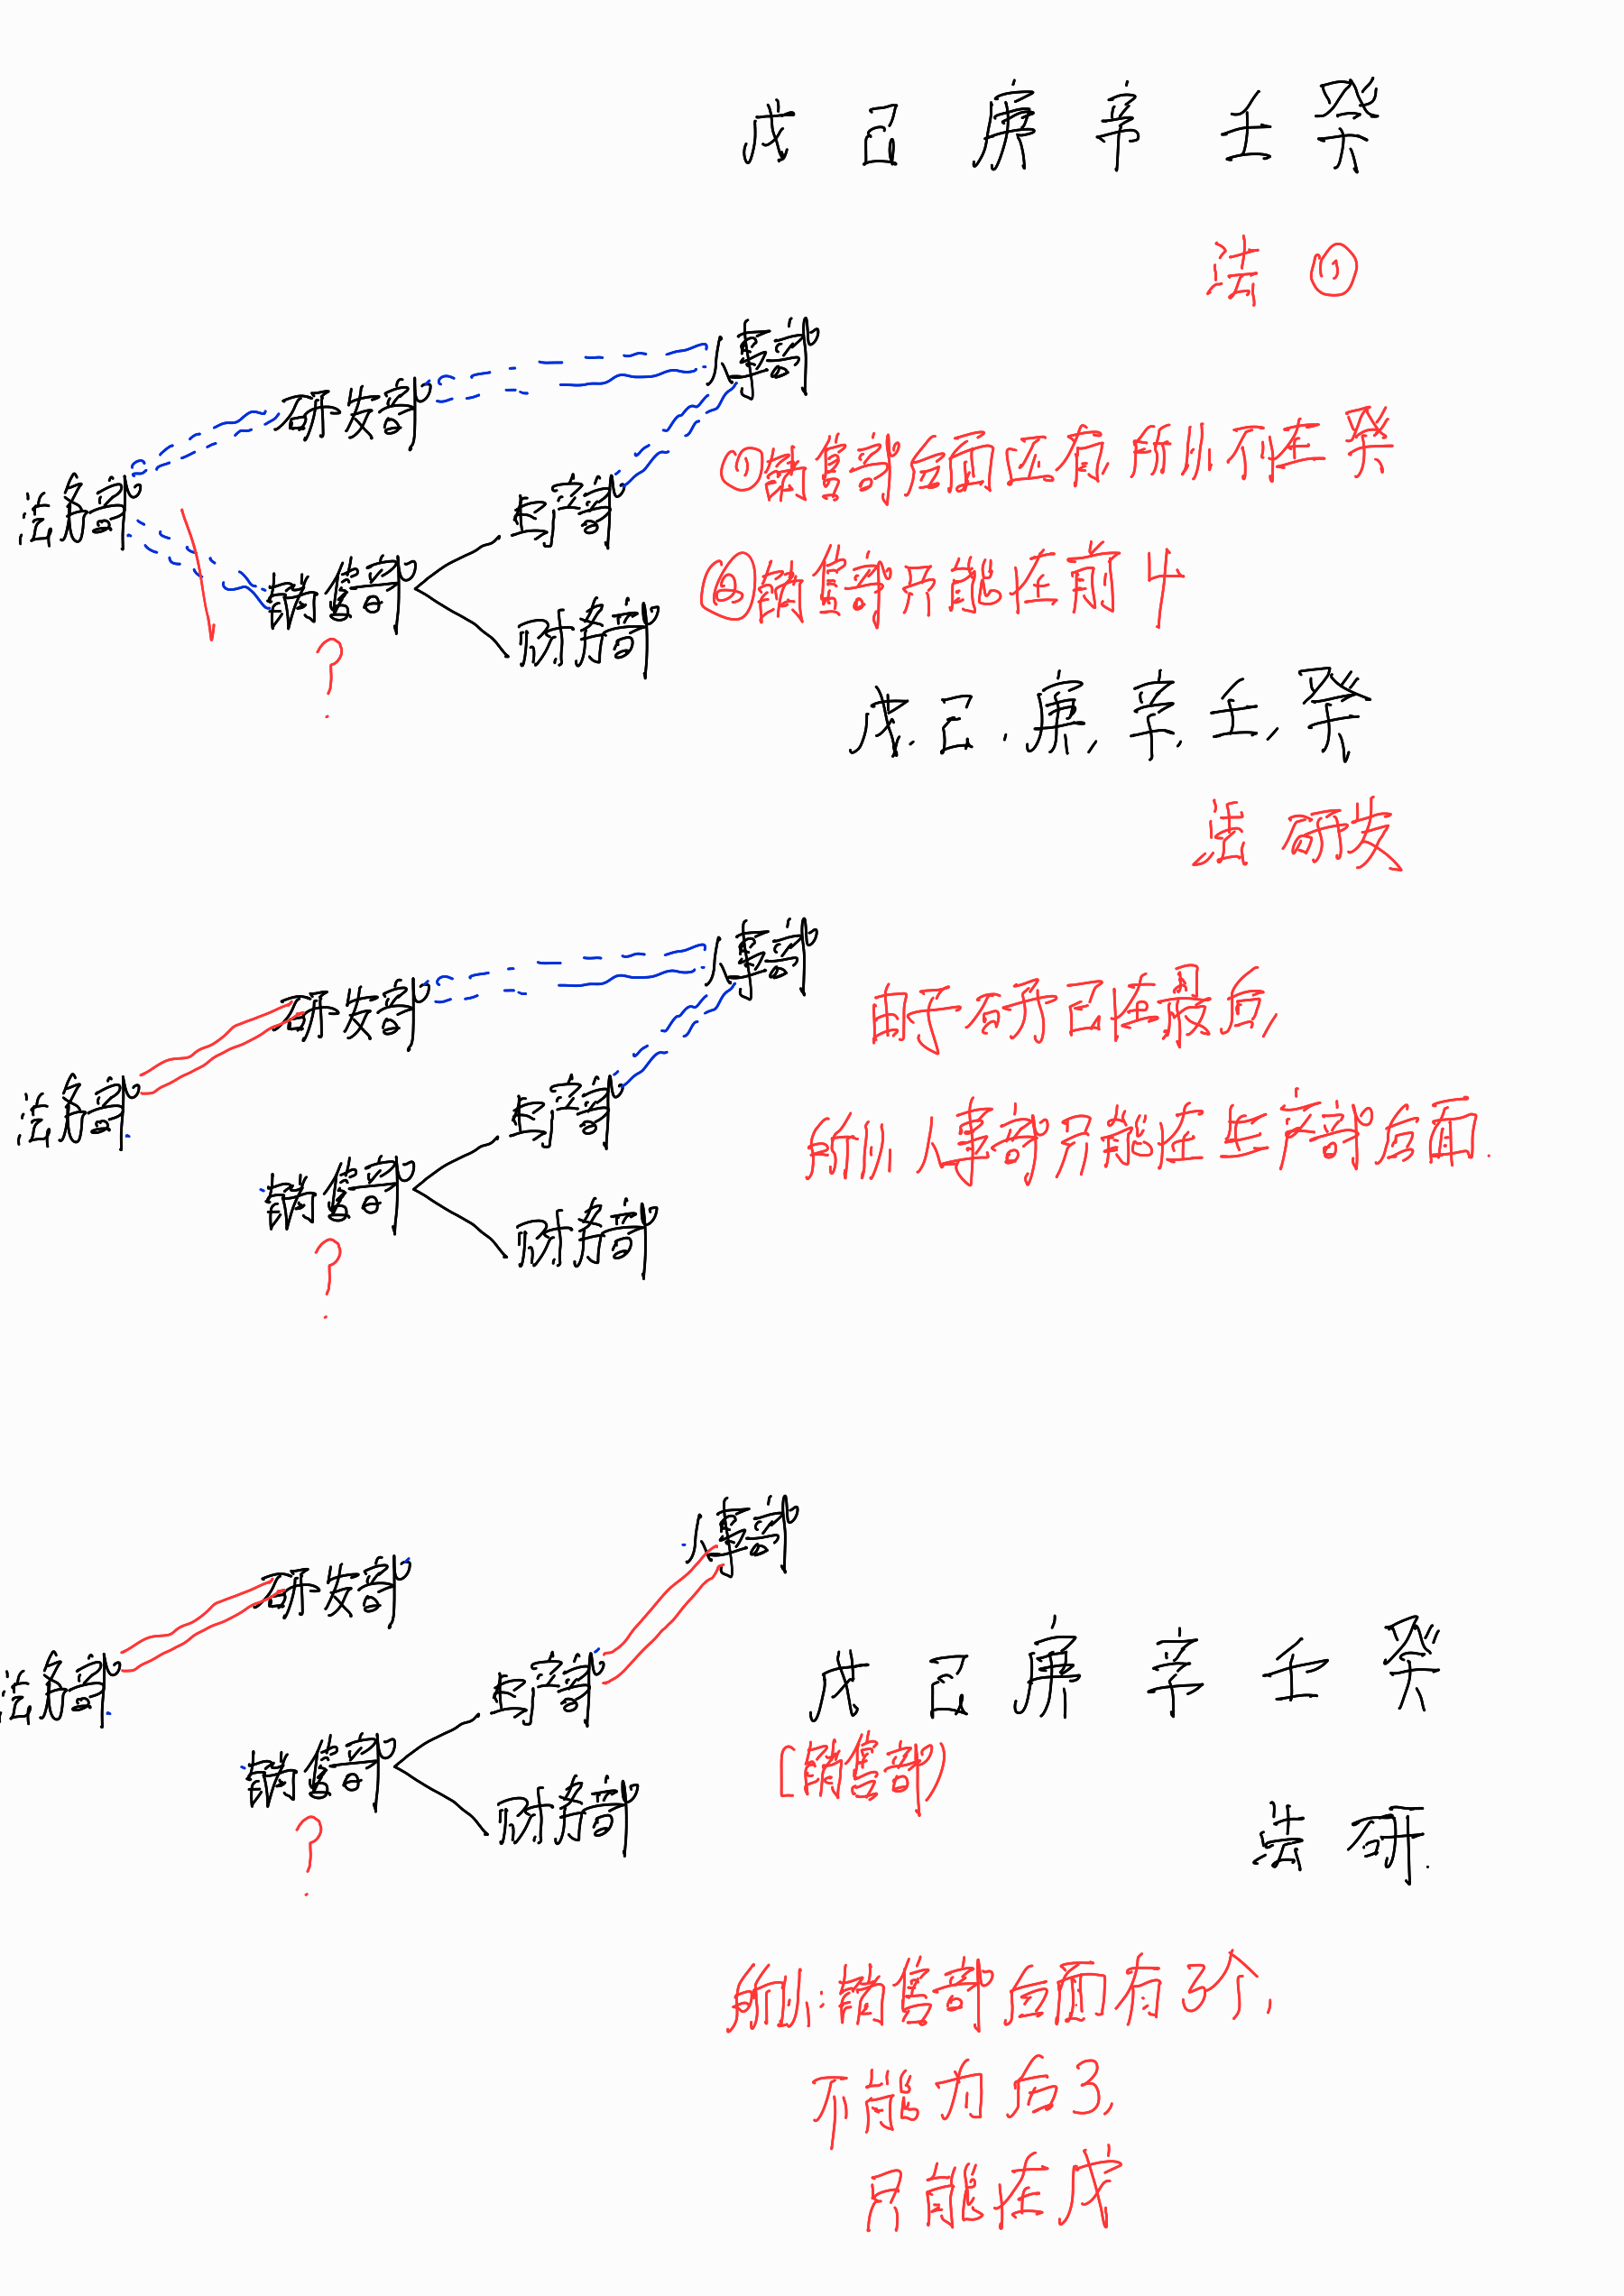 戊 己 庚 辛 壬 癸
法 ①
人事部
研发部
法务部
生产部
销售部
财务部
?
①销售部后面还有,所以不在癸
②销售部只能在前4
戊.己.庚,辛,壬,癸
法 研发
人事部
研发部
法务部
生产部
销售部
财务部
?
由于研已在最后,
所以人事部只能在生产部后面.
人事部
研发部
法务部
生产部
销售部
财务部
?
戊 己 庚 辛 壬 癸
[销售部)
法 研.
所以:销售部后面有3个,
不能为后3,
只能在戊